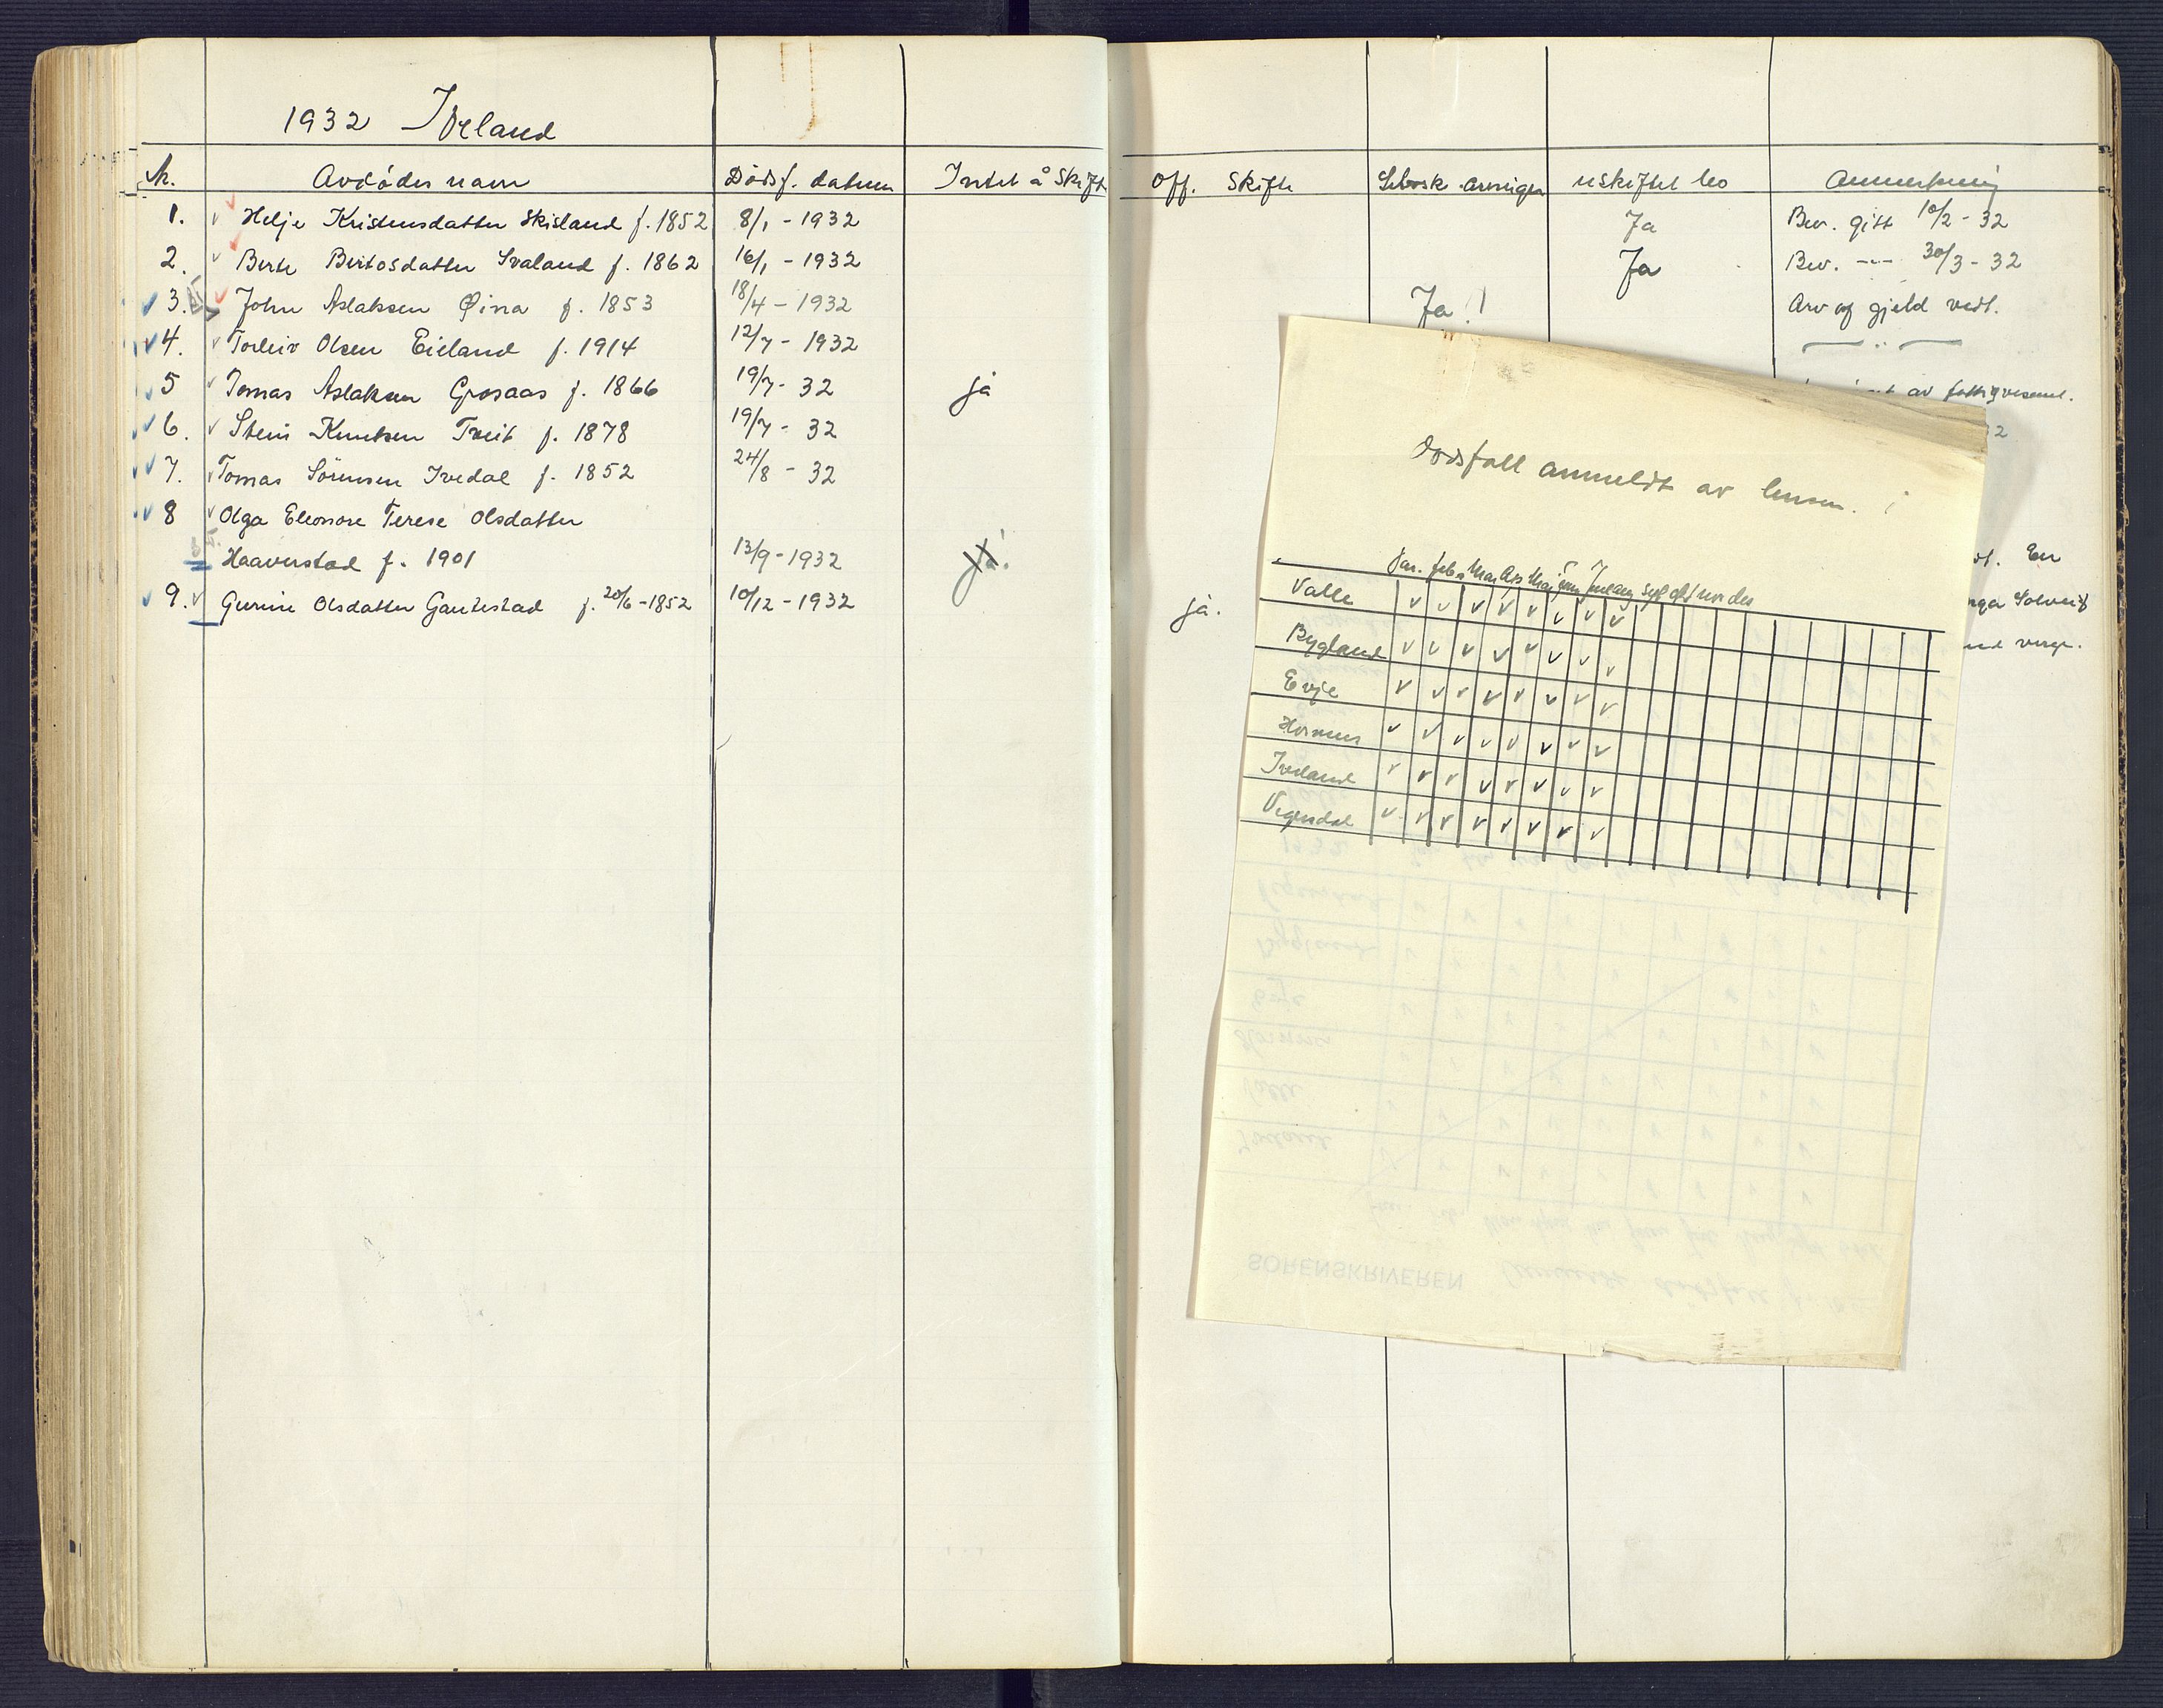 1932 Iveland
Nr. Avdødes navn Dödsf. datum Intet å Skifte Off. Skifte Selvsk. arvinger uskiftet bo Anmerkning
1. Helje Kristensdatter Skisland f. 1852 8/1 - 1932 Ja Bev. gitt 10/2 - 32
2. Berte Bertosdatter Svaland f. 1862 16/1 - 1932 Ja Bev. --- 30/3 - 32
3. John Aslaksen Øina f. 1853 18/4 - 1932 Ja! Arv og gjeld vedt.
4. Torleiv Olsen Eieland f. 1914 12/7 - 1932 — " —
5 Tomas Aslaksen Grosaas f. 1866 19/7 - 32 ja av fattigvesenet.
6. Stein Knutsen Tveit f. 1878 19/7 - 32 32
7. Tomas Sörensen Ivedal f. 1852 24/8 - 32
8 Olga Eleonore Terese Olsdatter
Haaverstad f. 1901 13/9 - 1932 ja. En
9. Gurine Olsdatter Gautestad f. 20/6 - 1852 10/12 - 1932 ja. Solveig
verge.
Dødsfall anmeldt av lensm. i
Jan. feb. Mar. Apr Mai Jun Jul aug sept okt nov des
Valle
Bygland
Evje
Hornnes
Iveland
Vegusdal
SORENSKRIVEREN